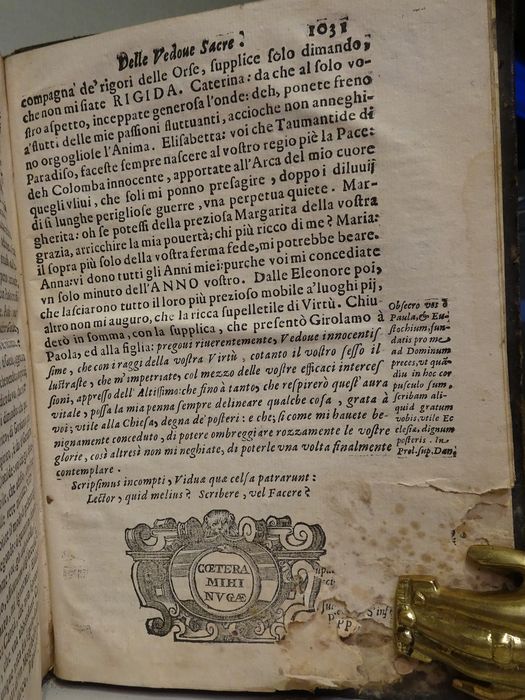 Delle Vedoue Sacre. 1031
compagna de' rigori delle Orse, supplice solo dimando,
che non mi siate RIGIDA. Caterina: da che al solo vo-
stro aspetto, inceppate generosa l'onde: deh, ponete freno
a' flutti delle mie passioni fluttuanti, acciochè non anneghi-
no orgogliose l'Anima. Elisabetta: voi che Taumantide di
Paradiso, faceste sempre nascere al vostro regio piè la Pace:
deh Colomba innocente, apportate all'Arca del mio cuore
quegli vliui, che soli mi ponno presagire, doppo i diluuij
di sì lunghe perigliose guerre, vna perpetua quiete. Mar-
gherita: oh se potessi della preziosa Margarita della vostra
grazia, arricchire la mia pouertà; chi più ricco di me? Maria:
il sopra più solo della vostra ferma fede, mi potrebbe beare.
Anna: vi dono tutti gli Anni miei: purche voi mi concediate
vn solo minuto dell'ANNO vostro. Dalle Eleonore poi,
che lasciarono tutto il loro più prezioso mobile a' luoghi pij,
altro non mi auguro, che la ricca supelletile di Virtù. Chiu
derò in somma, con la supplica, che presentò Girolamo à
Paola, ed alla figlia: pregoui riuerentemente, Vedoue innocentis
sime, che con i raggi della vostra Virtù, cotanto il vostro sesso il
lustraste, che m'impetriate, col mezzo delle vostre efficaci interces
sioni, appresso dell'Altissimo: che fino à tanto, che respirerò quest'aura
vitale, possa la mia penna sempre delineare qualche cosa, grata à
voi; vtile alla Chiesa, degna de' posteri: e che; sì come mi hauete be-
nignamente conceduto, di potere ombreggiare rozzamente le vostre
glorie, così altresì non mi neghiate, di poterle vna volta finalmente
contemplare.
Obsecro vos ò
Paula, & Eu-
stochium, fun-
datis pro me
ad Dominum
preces, vt quã-
diu in hoc cor
pusculo sum,
scribam ali-
quid gratum
vobis, vtile Ec
clesiæ, dignum
posteris. in
Prol. sup. Dan.
Scripsimus incompti, Viduæ quæ celsa patrarunt:
Lector, quid melius? Scribere, vel Facere?
CŒTERA
MIHI
NVGÆ